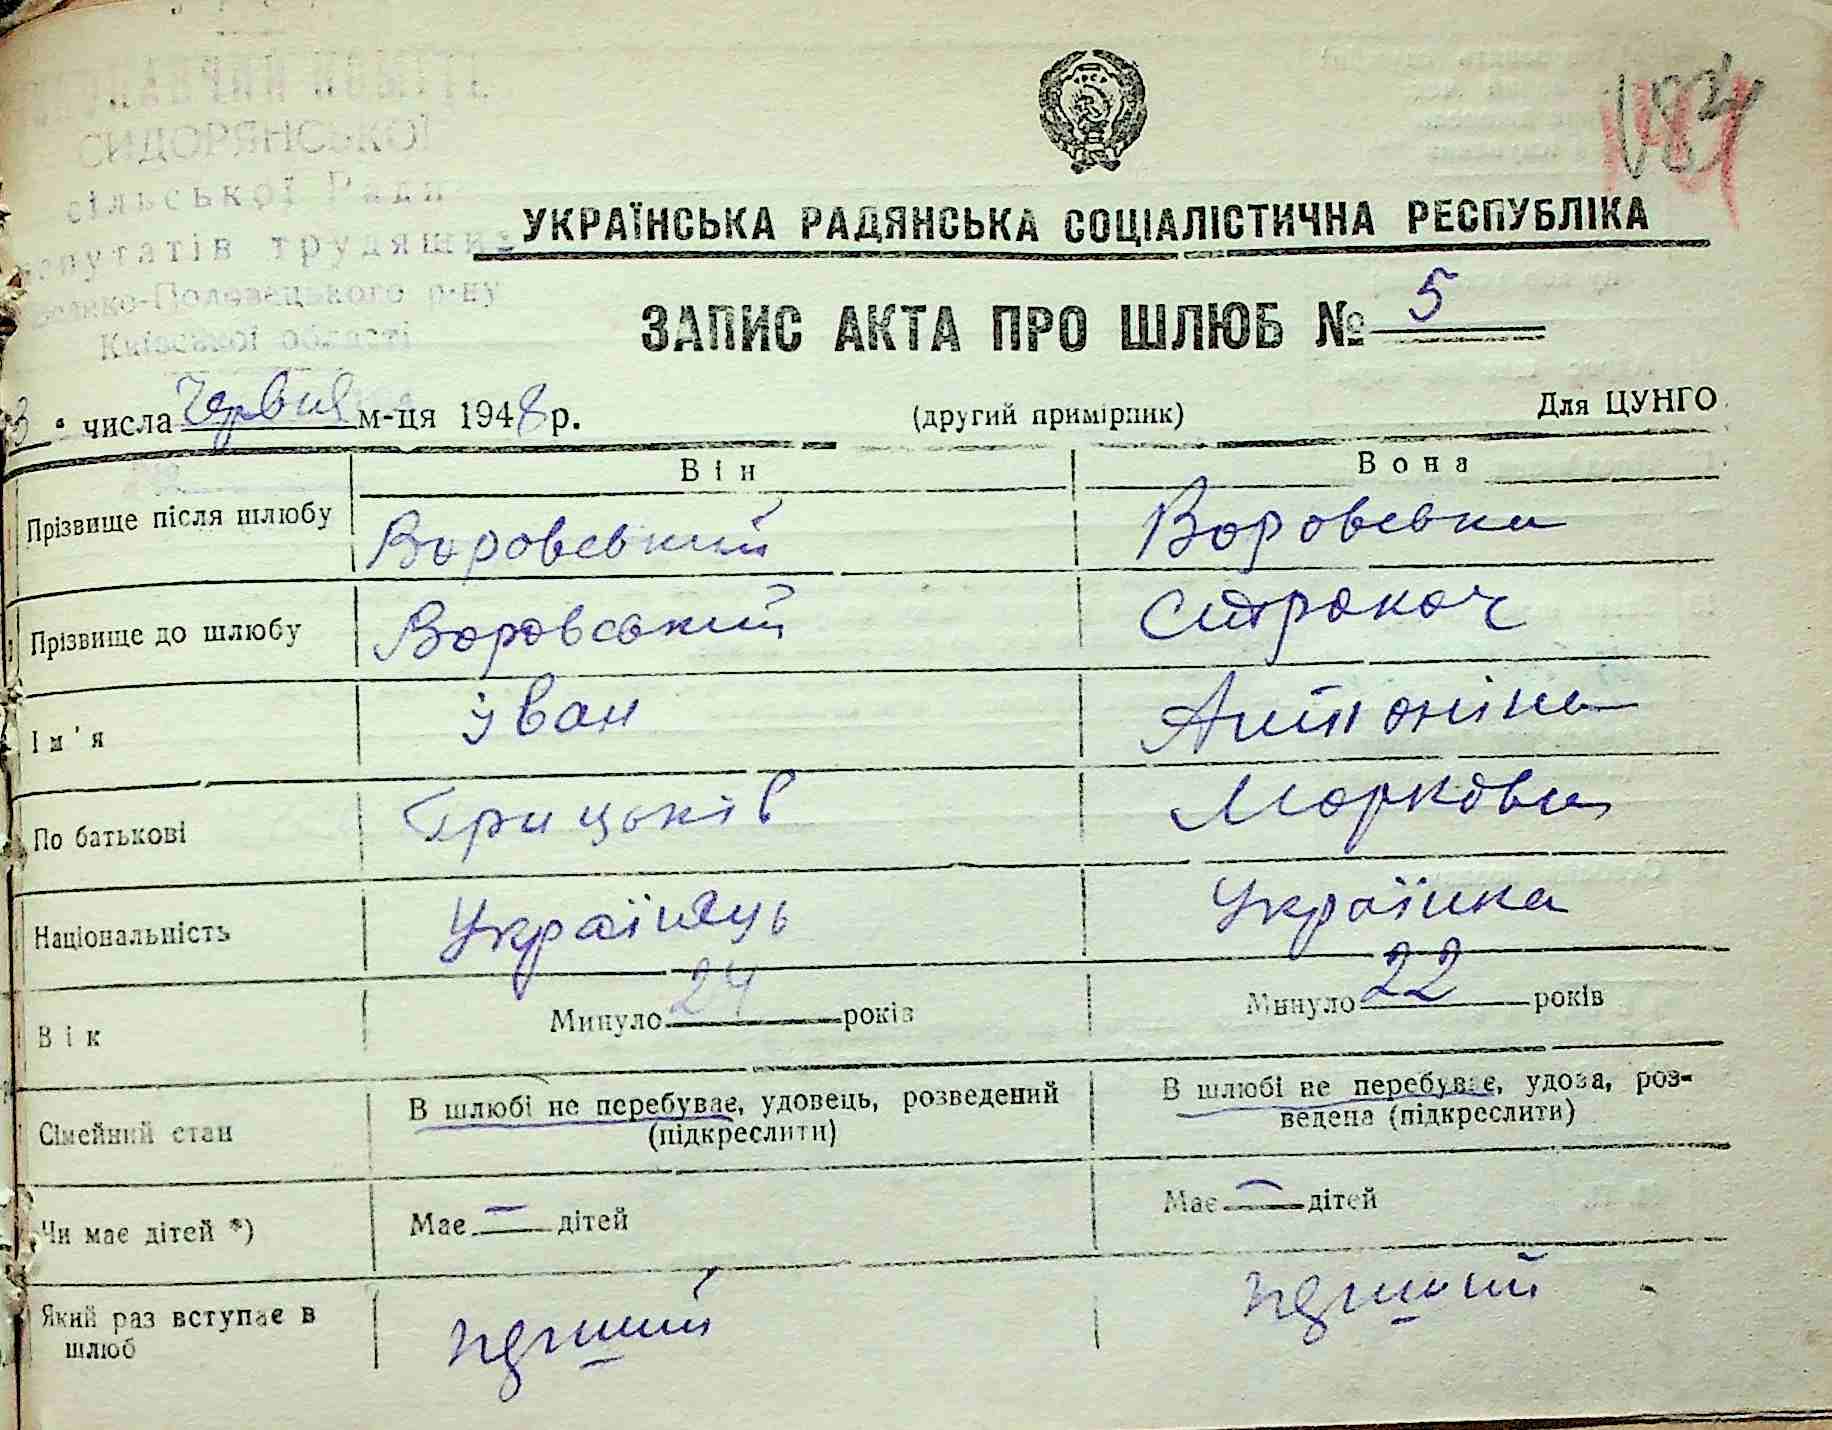 ВИКОНАВЧИЙ КОМІТЕТ
СИДОРЯНСЬКОЇ
сільської Ради
депутатів трудящих
Велико-Половецького р-ну
Київської області
184
УКРАЇНСЬКА РАДЯНСЬКА СОЦІАЛІСТИЧНА РЕСПУБЛІКА
ЗАПИС АКТА ПРО ШЛЮБ № 5
3 " числа Червня м-ця 1948 р. (другий примірник) Для ЦУНГО
Він Вона
Прізвище після шлюбу Воровський Воровська
Прізвище до шлюбу Воровський Стракач
Ім'я Іван Антоніна
По батькові Грицьків Марковна
Національність Українець Українка
Вік Минуло 24 років Минуло 22 років
Сімейний стан В шлюбі не перебуває, удовець, розведений (підкреслити) В шлюбі не перебуває, удова, роз-
ведена (підкреслити)
Чи має дітей *) Має — дітей Має — дітей
Який раз вступає в шлюб перший перший